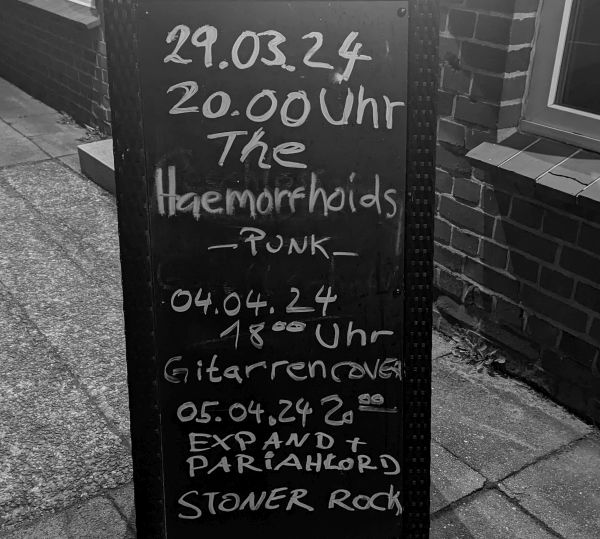 29.03.24
20.00 Uhr
The
Haemorrhoids
- PUNK -
04.04.24
18⁰⁰ Uhr
Gitarrencover
05.04.24 20⁰⁰
EXPAND +
PARiAHLORD
STONER ROCK